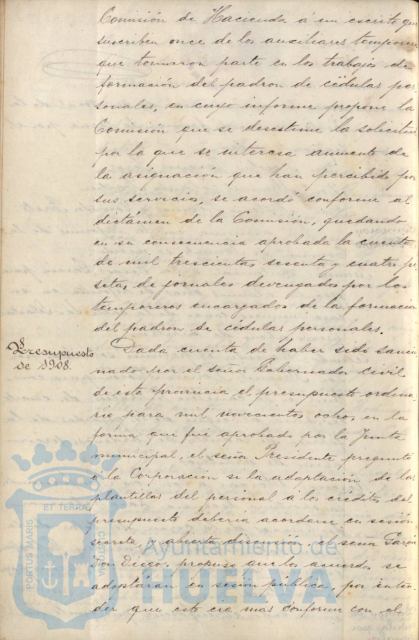 Comisión de Hacienda á un escrito que
suscriben once de los auxiliares temporeros
que tomaron parte en los trabajos de
formación del padron de cédulas per
sonales, en cuyo informe propone la
Comisión que se desestime la solicitud
por la que se interesa aumento de
la asignación que han percibido por
sus servicios, se acordó conforme al
dictámen de la Comisión, quedando
en su consecuencia aprobada la cuenta
de mil trescientas sesenta y cuatro pe
setas, de jornales devengados por los
temporeros encargados de la formacion
del padron de cédulas personales.
Presupuesto
de 1908.
Dada cuenta de haber sido sancio
nado por el señor Gobernador Civil
de esta provincia el presupuesto ordina
rio para mil novecientos ocho, en la
forma que fué aprobado por la Junta
municipal, el señor Presidente preguntó
á la Corporacion si la adaptacion de las
plantillas del personal á los créditos del
presupuesto deberia acordarse en sesión
secreta, y abierta discusión, el señor Garzón
Don Diego, propuso que los acuerdos se
adoptáran en sesión pública, por enten
der que esto era mas conforme con el
PORTUS MARIS
ET TERRAE
CUSTODIA
Ayuntamiento de
HUELVA